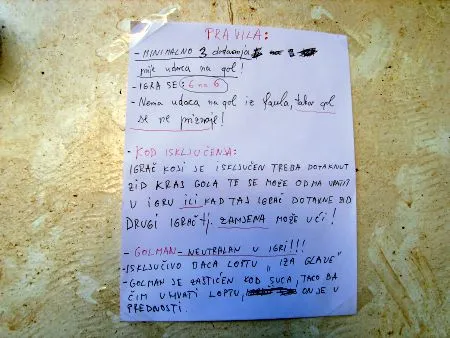 PRAVILA:
- MINIMALNO 3 dodavanja
prije udarca na gol!
- IGRA SE: 6 na 6
- Nema udarca na gol iz faula, takav gol
se ne priznaje!
- KOD ISKLJUČENJA:
IGRAČ KOJI JE ISKLJUČEN TREBA DOTAKNUT
ZID KRAJ GOLA TE SE MOŽE ODMA VRATIT
U IGRU ILI KAD TAJ IGRAČ DOTAKNE ZID
DRUGI IGRAČ tj. ZAMJENA MOŽE UĆI!
- GOLMAN - NEUTRALAN U IGRI!!!
- ISKLJUČIVO BACA LOPTU „IZA GLAVE"
- GOLMAN JE ZAŠTIĆEN KOD SUCA, TAKO DA
ČIM UHVATI LOPTU, ON JE U
PREDNOSTI.